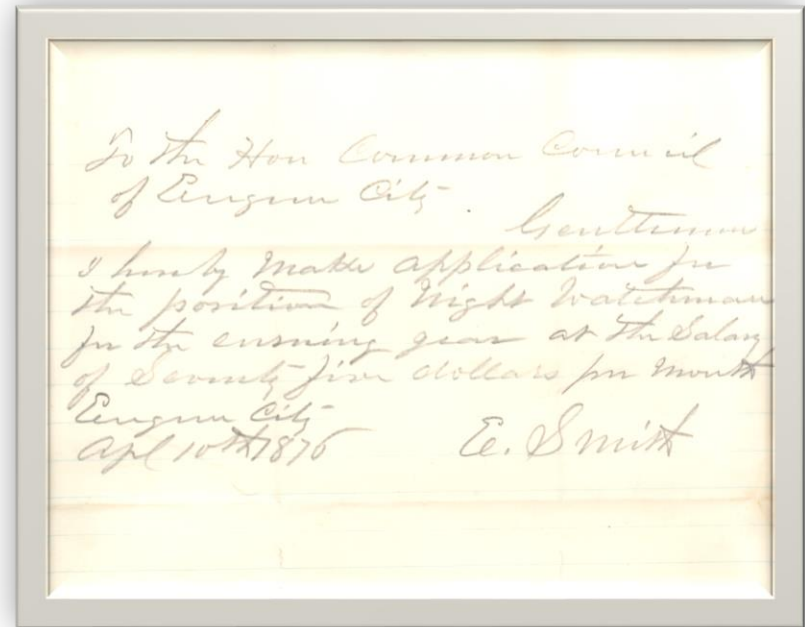 To the Hon Common Council
of Eugene City.
Gentlemen
I hereby make application for
the position of Night Watchman
for the ensuing year at the Salary
of Seventy five dollars per Month
Eugene City
Apl 10th 1876
E. Smith